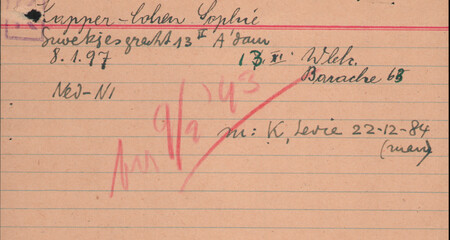 Kapper-Cohen Sophie
Zwekjesgracht 13 II A'dam
8.1.97 13 XI. Wlek.
Baracke 63
Ned-NI
9/2 '43
m: K, Levie 22-12-84
(man)